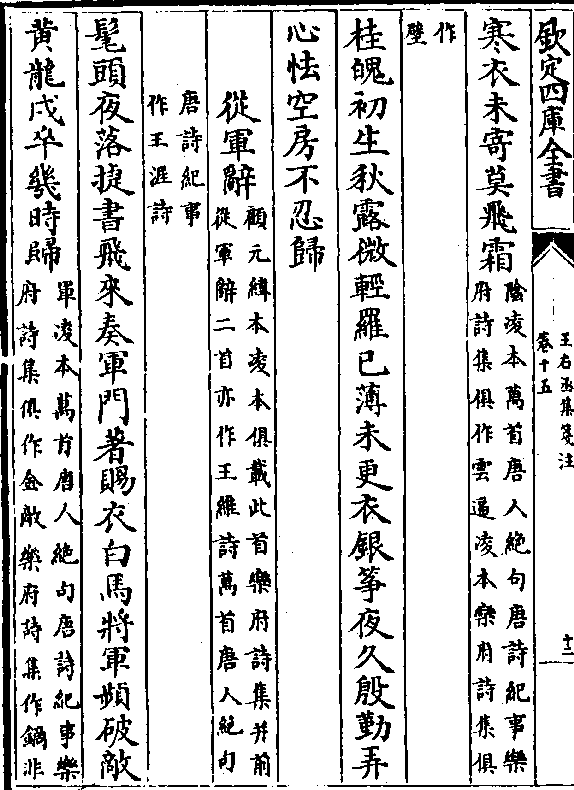 欽定四庫全書
王右丞集箋注
卷十五
十三
寒衣未寄莫飛霜
陰凌本萬首唐人絶句唐詩紀事樂
府詩集俱作雲邊凌本樂府詩集俱
作
壁
桂魄初生秋露微輕羅已薄未更衣銀箏夜久殷勤弄
心怯空房不忍歸
從軍辭
顧元緯本凌本俱載此首樂府詩集并前
從軍辭二首亦作王維詩萬首唐人絶句
唐詩紀事
作王涯詩
髦頭夜落捷書飛來奏軍門著賜衣白馬將軍頻破敵
黄龍戍卒幾時歸
軍凌本萬首唐人絶句唐詩紀事樂
府詩集俱作金敵樂府詩集作鏑非